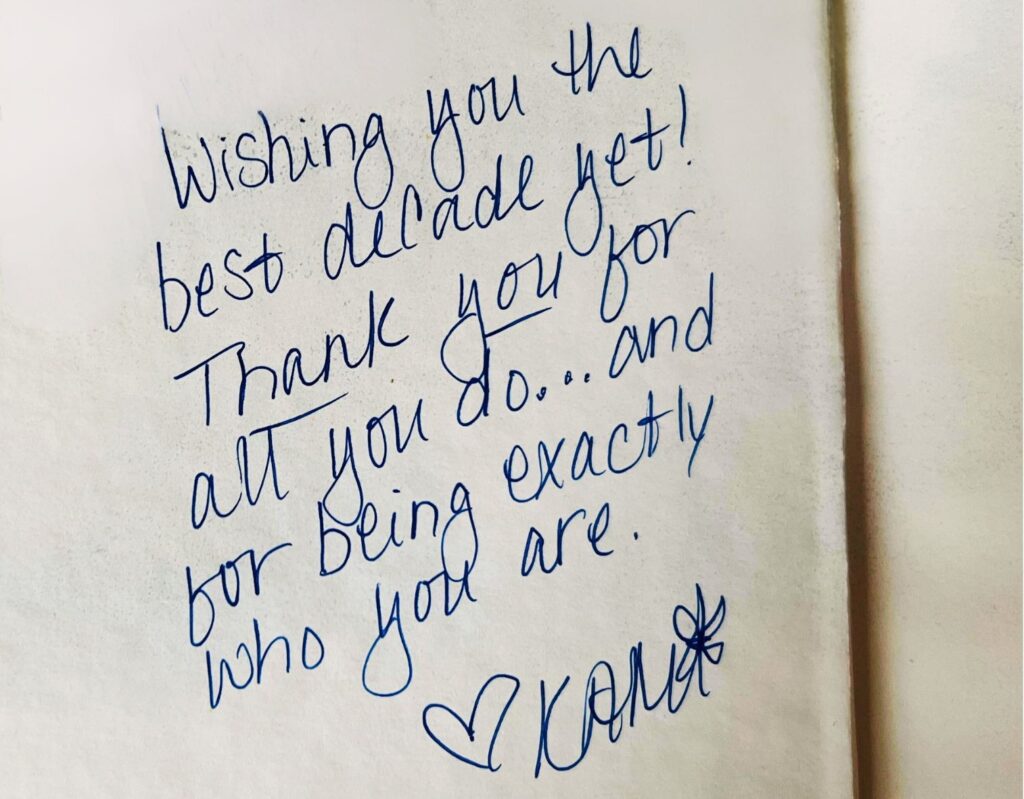 Wishing you the
best decade yet!
Thank you for
all you do... and
for being exactly
who you are.
♡ XANA